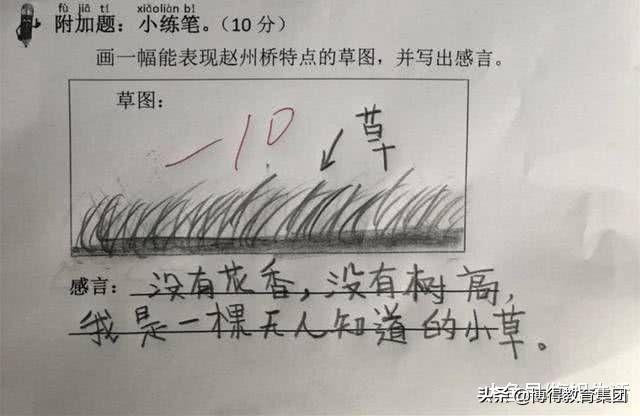 fù jiā tí xiǎoliàn bǐ
附加题：小练笔。（10 分）
画一幅能表现赵州桥特点的草图，并写出感言。
草图：
-10
草
感言：没有花香，没有树高，
我是一棵无人知道的小草。
头条 @博得教育集团